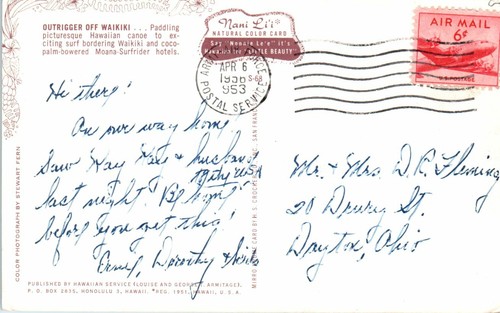 OUTRIGGER OFF WAIKIKI . . . Paddling
picturesque Hawaiian canoe to ex-
citing surf bordering Waikiki and coco-
palm-bowered Moana-Surfrider hotels.
Nani Li'i*
NATURAL COLOR CARD
Say "Nonnie Lee's" it's
Hawaiian for "LITTLE BEAUTY"
S-68
ARMY-AIR FORCE
APR 6
1956
953
POSTAL SERVICE
AIR MAIL
6¢
U.S. POSTAGE
Hi there!
On our way home.
Saw Kay & husband
last night. Be home
before you get this!
Ernie, Dorothy &
Mr. & Mrs. D. R. Fleming
20 Drury St.
Dayton, Ohio
COLOR PHOTOGRAPH BY STEWART FERN
MIRRO CARD BY H. S. CROCKER SAN FRAN
PUBLISHED BY HAWAIIAN SERVICE (LOUISE AND GEORGE ARMITAGE),
P. O. BOX 2835, HONOLULU 3, HAWAII. *REG. 1951-HAWAII, U. S. A.